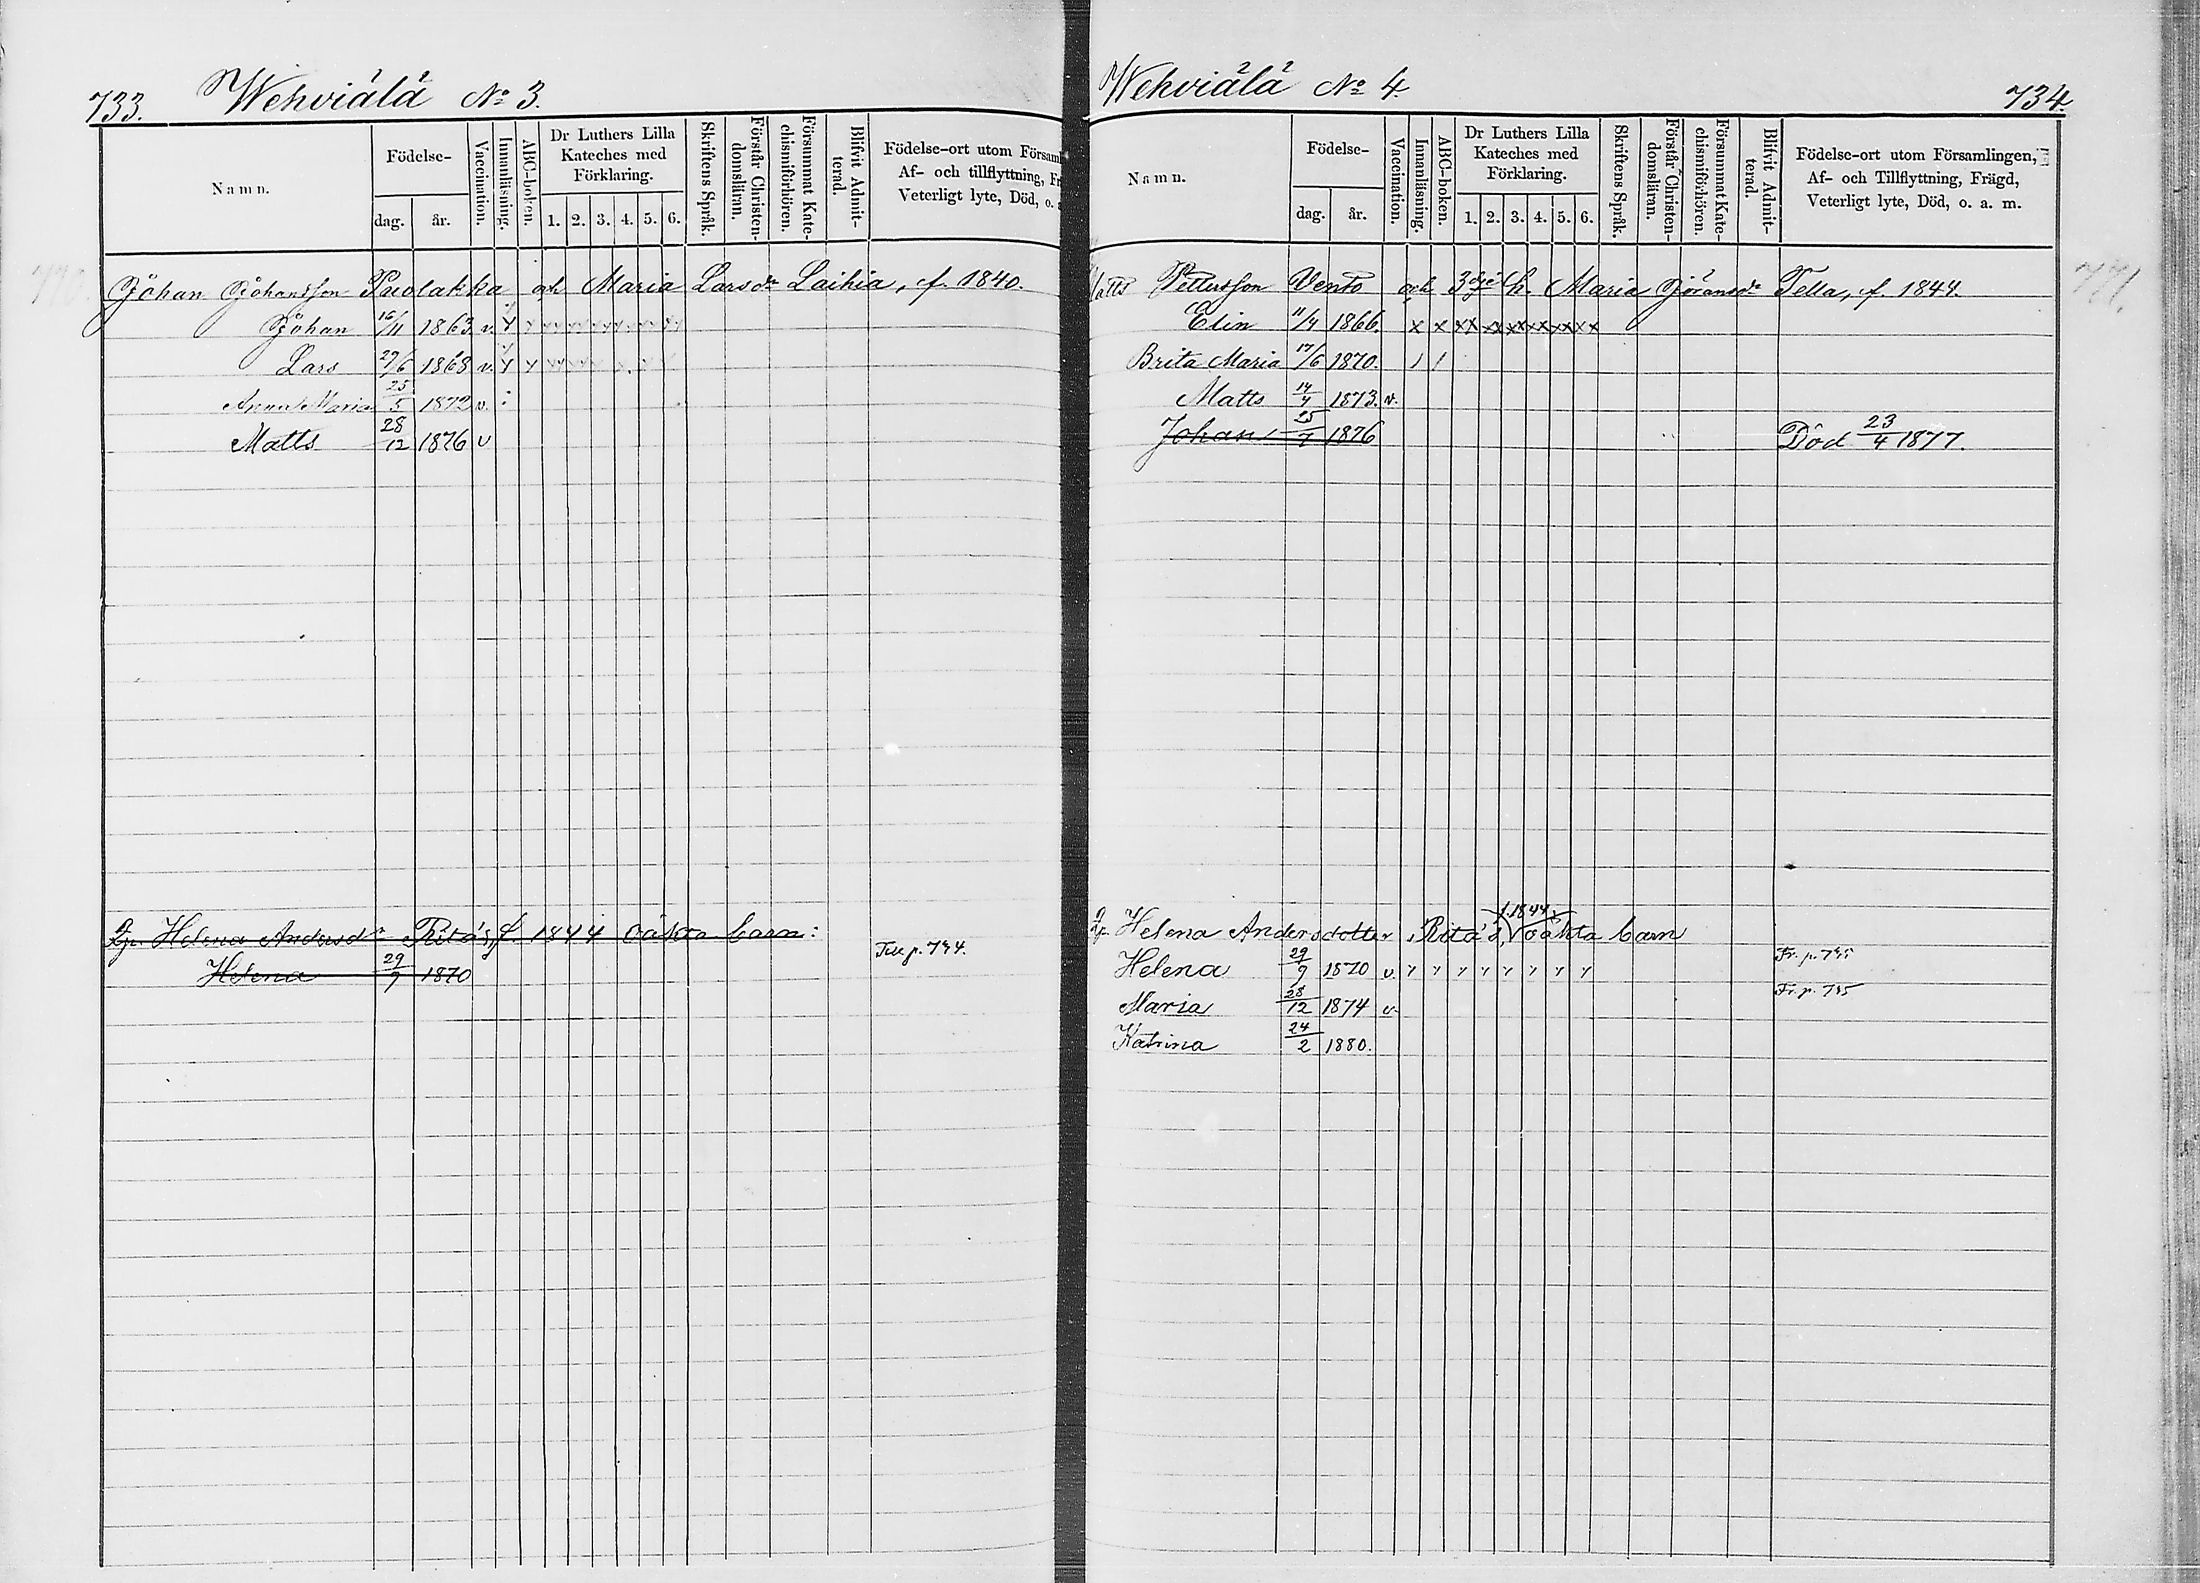 733. Wehviälä No 3.
Namn.
Födelse-
dag. år.
Vaccination.
Innanläsning.
ABC-boken.
Dr Luthers Lilla
Kateches med
Förklaring.
1. 2. 3. 4. 5. 6.
Skriftens Språk.
Förstår Christen-
domsläran.
Försummat Kate-
chismiförhören.
Blifvit Admit-
terad.
Födelse-ort utom Församl
Af- och tillflyttning, Fr
Veterligt lyte, Död, o. a
Johan Johansson Puolakka och Maria Larsdr Laihia, f. 1840.
Johan 16/11 1863 v.
Lars 29/6 1868 v.
Anna Maria 25/5 1872 v.
Matts 28/12 1876 v
Helena Andersdr Ritás, f. 1844 oäkta barn:
Till p. 734.
Helena 29/9 1870
Wehviälä No 4. 734.
Namn.
Födelse-
dag. år.
Vaccination.
Innanläsning.
ABC-boken.
Dr Luthers Lilla
Kateches med
Förklaring.
1. 2. 3. 4. 5. 6.
Skriftens Språk.
Förstår Christen-
domsläran.
Försummat Kate-
chismiförhören.
Blifvit Admit-
terad.
Födelse-ort utom Församlingen,
Af- och Tillflyttning, Frägd,
Veterligt lyte, Död, o. a. m.
Matts Pettersson Vento och 3dje h. Maria Jöransdr Tella, f. 1844.
Elin 11/4 1866. x x xx xx xx xx xx xx
Brita Maria 17/6 1870. / /
Matts 14/4 1873. v.
Johan 25/7 1876 Död 23/4 1877.
f. 1844
Helena Andersdotter Ritá's, oäkta barn
Helena 29/9 1870 v. Fr. p. 733
Maria 28/12 1874 v. Fr. p. 735
Katrina 24/2 1880.